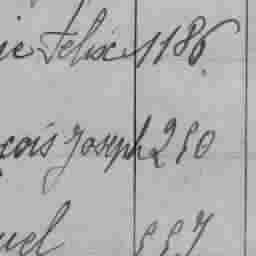 ie Felix 1186
çois Joseph 250
uel 557